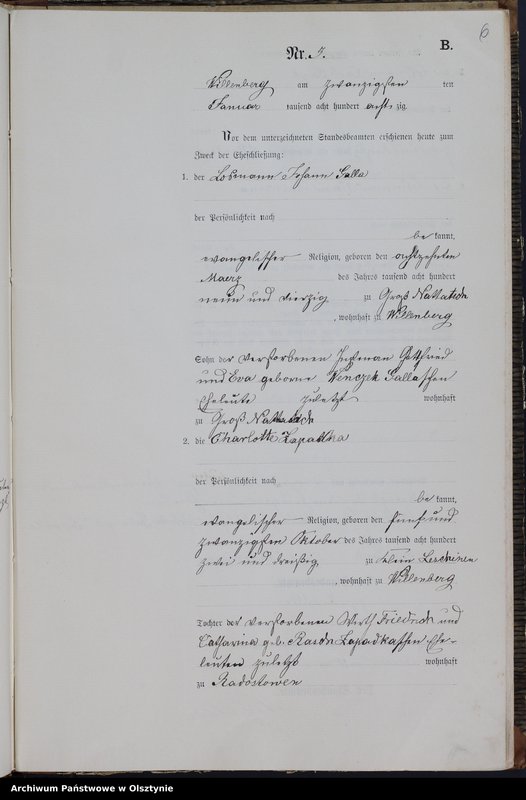 6
Nr. 5. B.
Willenberg am zwanzigsten ten
Januar tausend acht hundert achtzig.
Vor dem unterzeichneten Standesbeamten erschienen heute zum
Zweck der Eheschließung:
1. der Losmann Johann Galla
der Persönlichkeit nach
bekannt,
evangelischer Religion, geboren den achtzehnten
Maerz des Jahres tausend acht hundert
neun und vierzig zu Groß Nattatsch
, wohnhaft zu Willenberg
Sohn der verstorbenen Gottfried
und Eva geborne Gallaschen
Eheleute zuletzt wohnhaft
zu Groß Nattatsch
2. die Charlotte Lapadka
der Persönlichkeit nach
bekannt,
evangelischer Religion, geboren den fünf und
zwanzigsten Oktober des Jahres tausend acht hundert
zwei und dreißig, zu Klein Leschinen
, wohnhaft zu Willenberg
Tochter der verstorbenen Wirth Friedrich und
Catharina geb. Lapadkaschen Ehe-
leuten zuletzt wohnhaft
zu Radostowen
Archiwum Państwowe w Olsztynie